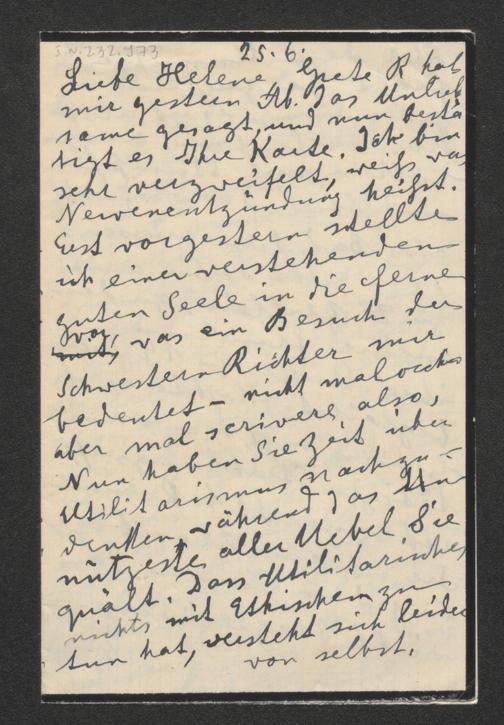 S.N.232.973
25.6.
Liebe Helene, Grete R hat
mir gestern Ab. das Unlieb
same gesagt, und nun bestä
tigt es Ihre Karte. Ich bin
sehr verzweifelt, weiß was
Nervenentzündung heißt.
Erst vorgestern stellte
ich einer verstehenden
guten Seele in die Ferne
vor, was ein Besuch der
Schwestern Richter mir
bedeutet – nicht mal
aber mal scrivere also,
Nun haben Sie Zeit über
Utilitarismus nachzu-
denken, während das Un-
nützeste aller Uebel Sie
quält. Dass Utilitarisches
nichts mit Ethischem zu
tun hat, versteht sich leider
von selbst.